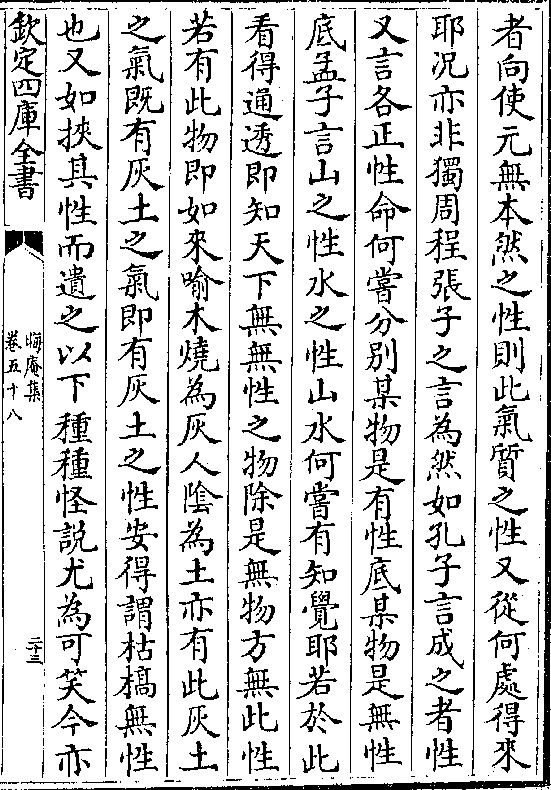 者向使元無本然之性則此氣質之性又從何處得來
耶况亦非獨周程張子之言為然如孔子言成之者性
又言各正性命何嘗分别某物是有性底某物是無性
底孟子言山之性水之性山水何嘗有知覺耶若於此
看得通透即知天下無無性之物除是無物方無此性
若有此物即如來喻木燒為灰人陰為土亦有此灰土
之氣既有灰土之氣即有灰土之性安得謂枯槁無性
也又如挾其性而遺之以下種種怪説尤為可笑今亦
欽定四庫全書
晦庵集
卷五十八
二十三